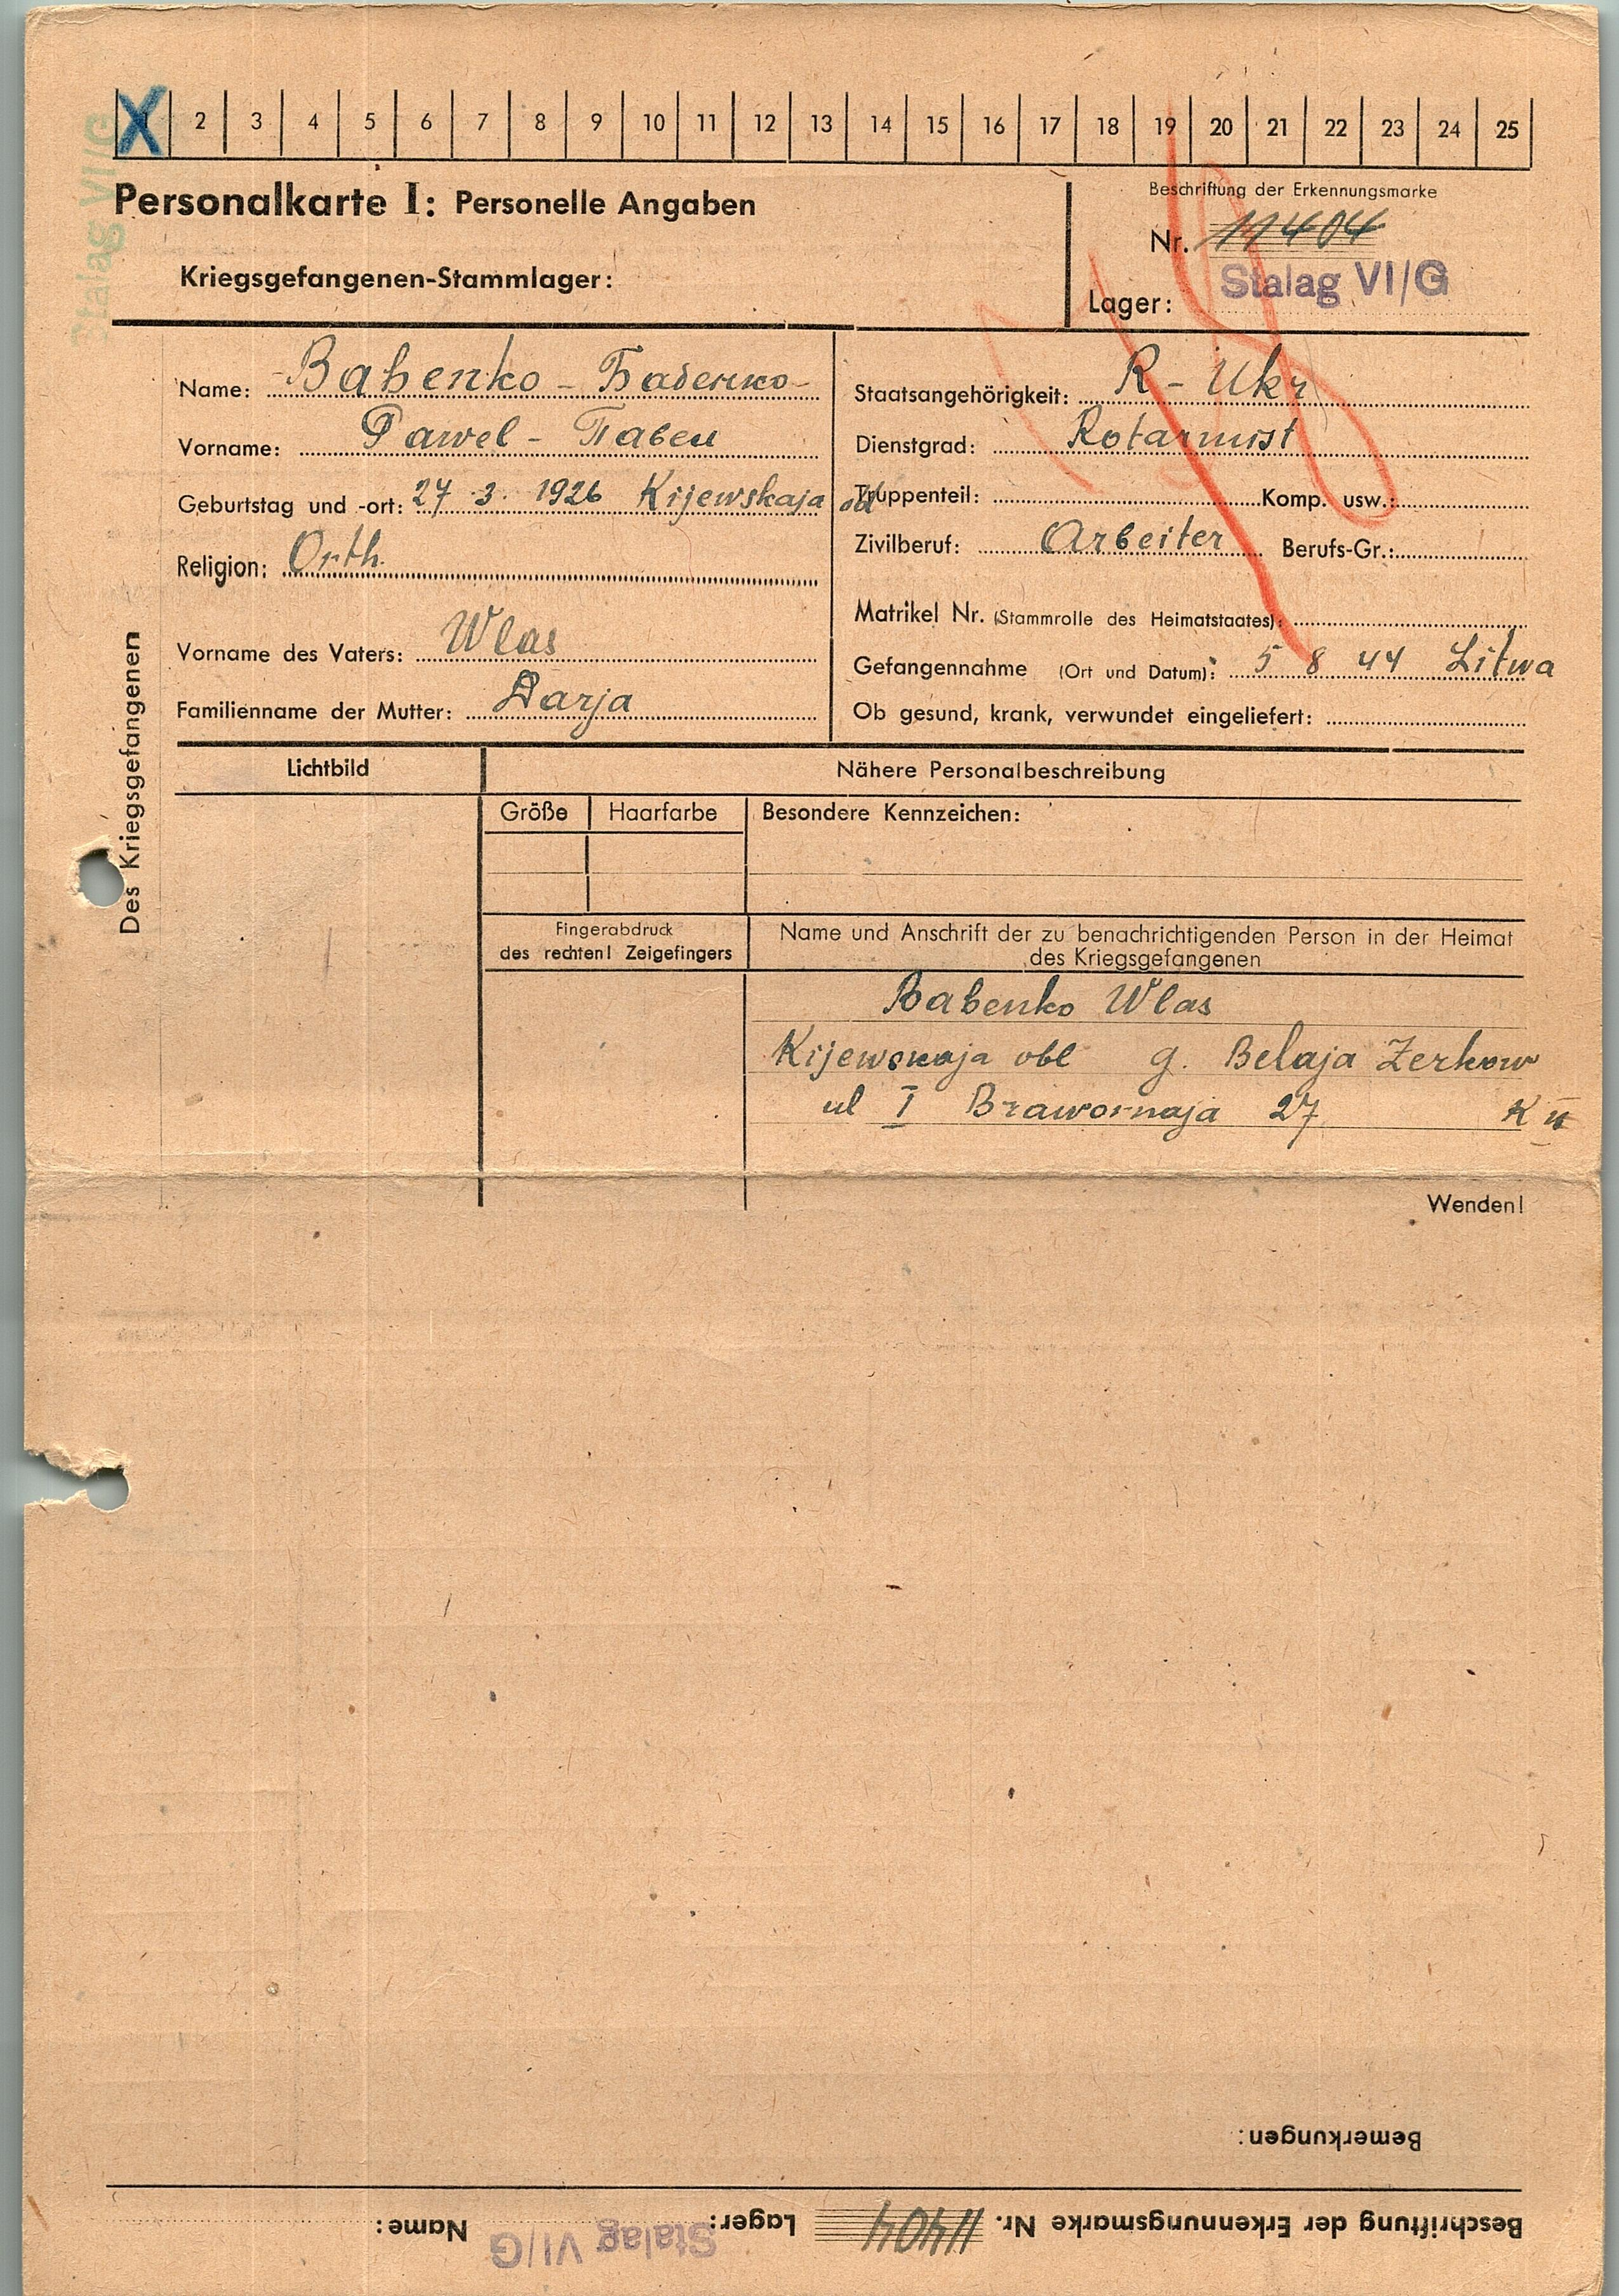 X 2 3 4 5 6 7 8 9 10 11 12 13 14 15 16 17 18 19 20 21 22 23 24 25
Stalag VI G
Personalkarte I: Personelle Angaben
Beschriftung der Erkennungsmarke
Nr. 11404
Kriegsgefangenen-Stammlager:
Lager: Stalag VI/G
Des Kriegsgefangenen
Name: Babenko - Бабенко
Vorname: Pawel - Павел
Geburtstag und -ort: 27 3. 1926 Kijewskaja
Religion: Orth.
Vorname des Vaters: Wlas
Familienname der Mutter: Darja
Staatsangehörigkeit: R - Ukr
Dienstgrad: Rotarmist
Truppenteil: Komp. usw.:
Zivilberuf: Arbeiter Berufs-Gr.:
Matrikel Nr. (Stammrolle des Heimatstaates):
Gefangennahme (Ort und Datum): 5 8 44 Litwa
Ob gesund, krank, verwundet eingeliefert:
Lichtbild
Nähere Personalbeschreibung
Größe Haarfarbe Besondere Kennzeichen:
Fingerabdruck
des rechten! Zeigefingers
Name und Anschrift der zu benachrichtigenden Person in der Heimat
des Kriegsgefangenen
Babenko Wlas
Kijewskaja obl g. Belaja Zerkow
ul I 27
Wenden!
Bemerkungen:
Beschriftung der Erkennungsmarke Nr. 11404 Lager: Stalag VI/G Name: